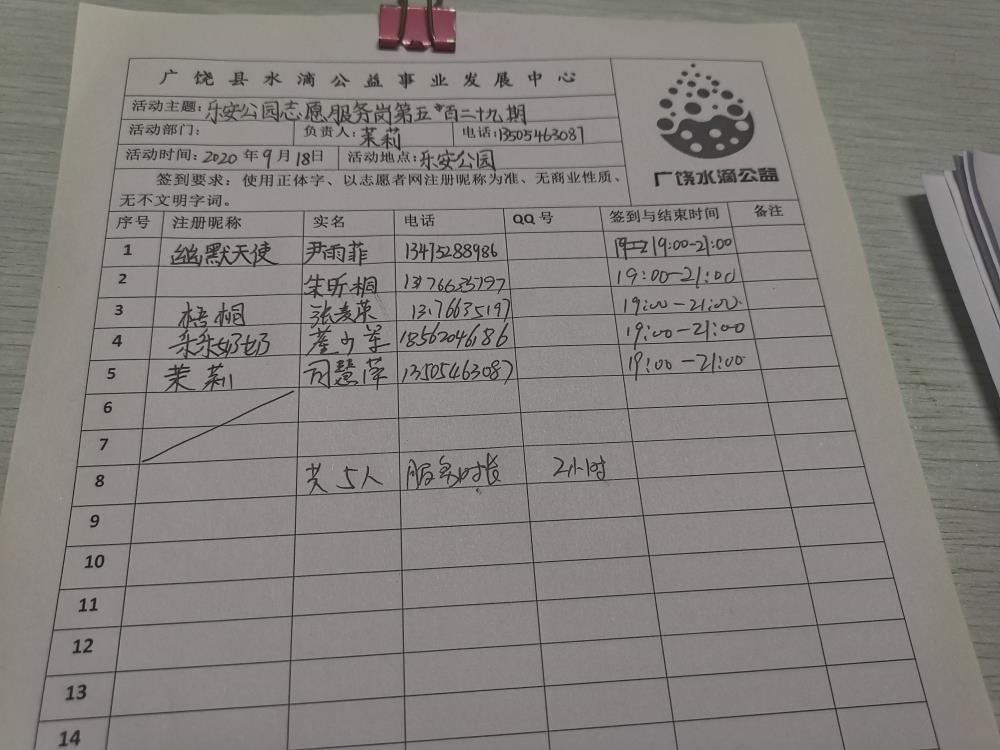 广饶县水滴公益事业发展中心
活动主题：乐安公园志愿服务岗第五百二十九期
活动部门： 负责人：茉莉 电话：13505463087
活动时间：2020年9月18日 活动地点：乐安公园
签到要求：使用正体字、以志愿者网注册昵称为准、无商业性质、
无不文明字词。
广饶水滴公益
序号 注册昵称 实名 电话 QQ号 签到与结束时间 备注
1 幽默天使 尹雨菲 13475288986 19:00-21:00
2 朱昕桐 19:00-21:00
3 梧桐 19:00-21:00
4 乐乐奶奶 18562046186 19:00-21:00
5 茉莉 司慧萍 13505463087 19:00-21:00
6
7
8 共5人 服务时长 2小时
9
10
11
12
13
14